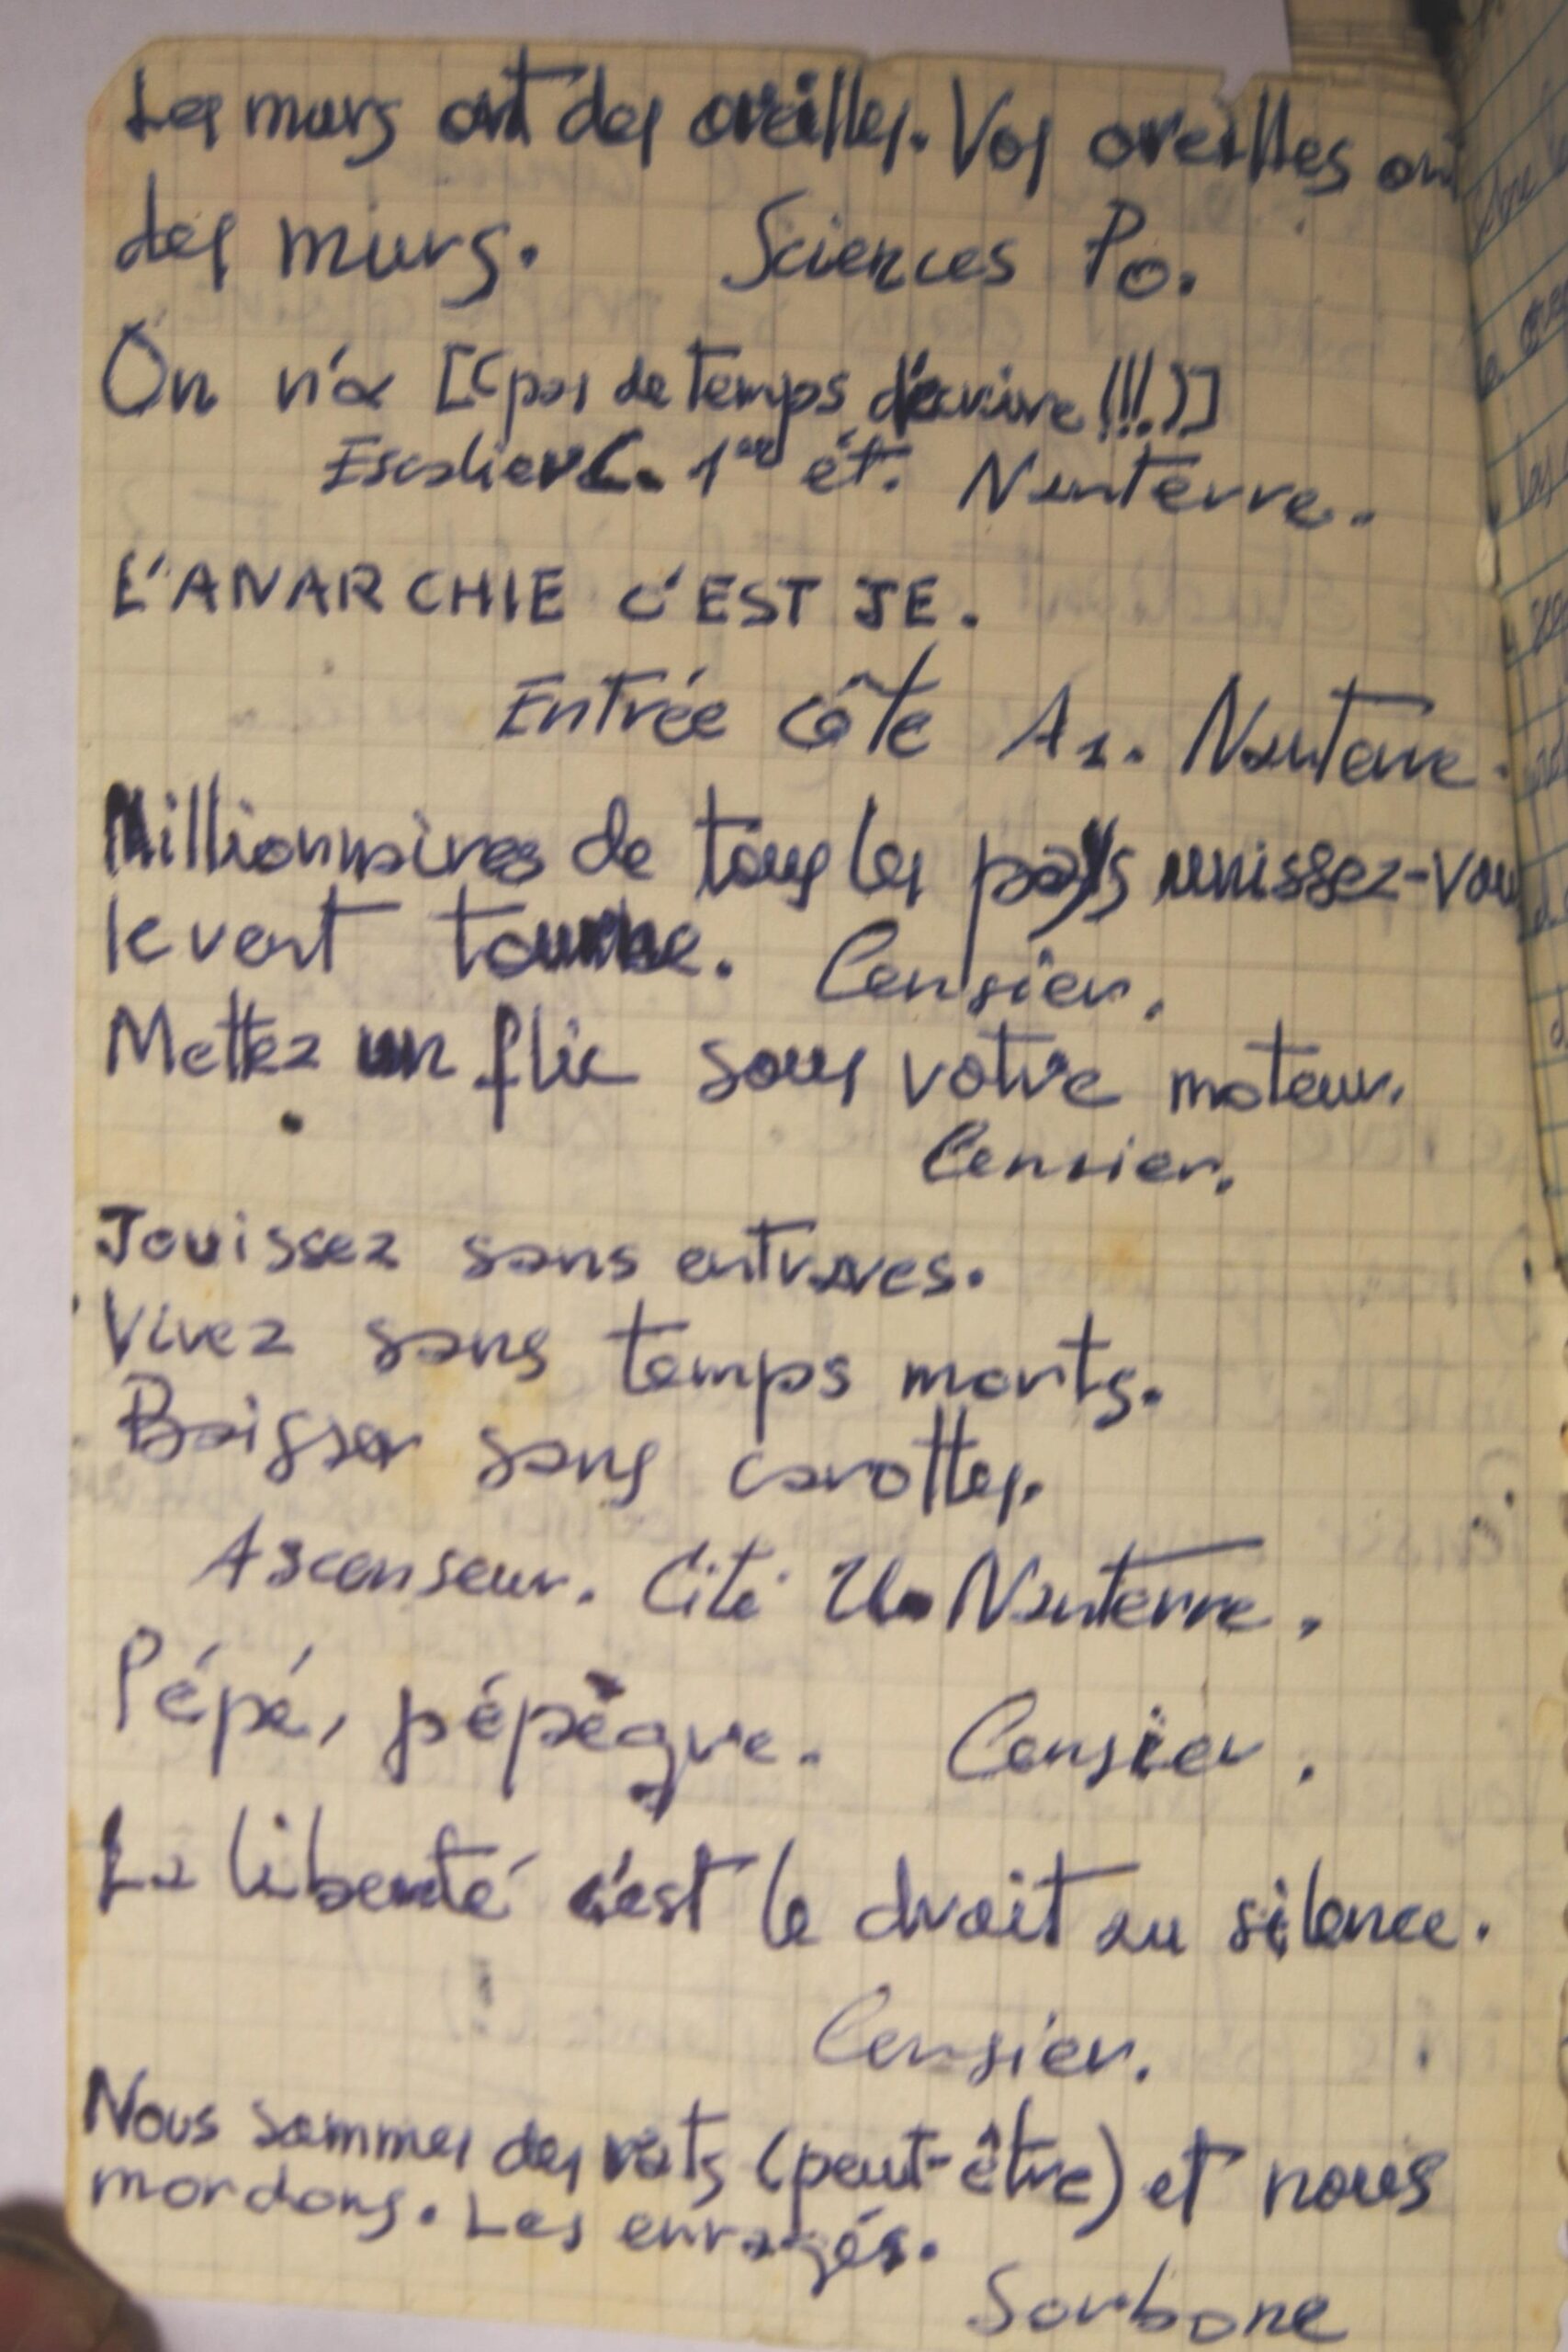 Les murs ont des oreilles. Vos oreilles ont
des murs. Sciences Po.
On n'a [(pas de temps d'écrire!!!)]
Escalier C. 1er ét. Nanterre.
L'ANARCHIE C'EST JE.
Entrée côté A1. Nanterre.
Millionnaires de tous les pays unissez-vou
le vent tourne. Censier.
Mettez un flic sous votre moteur.
Censier.
Jouissez sans entraves.
Vivez sans temps morts.
Baisser sans carottes.
Ascenseur. Cité U. Nanterre.
Pépé, pépègre. Censier.
La liberté c'est le droit au silence.
Censier.
Nous sommes des rats (peut-être) et nous
mordons. Les enragés.
Sorbone